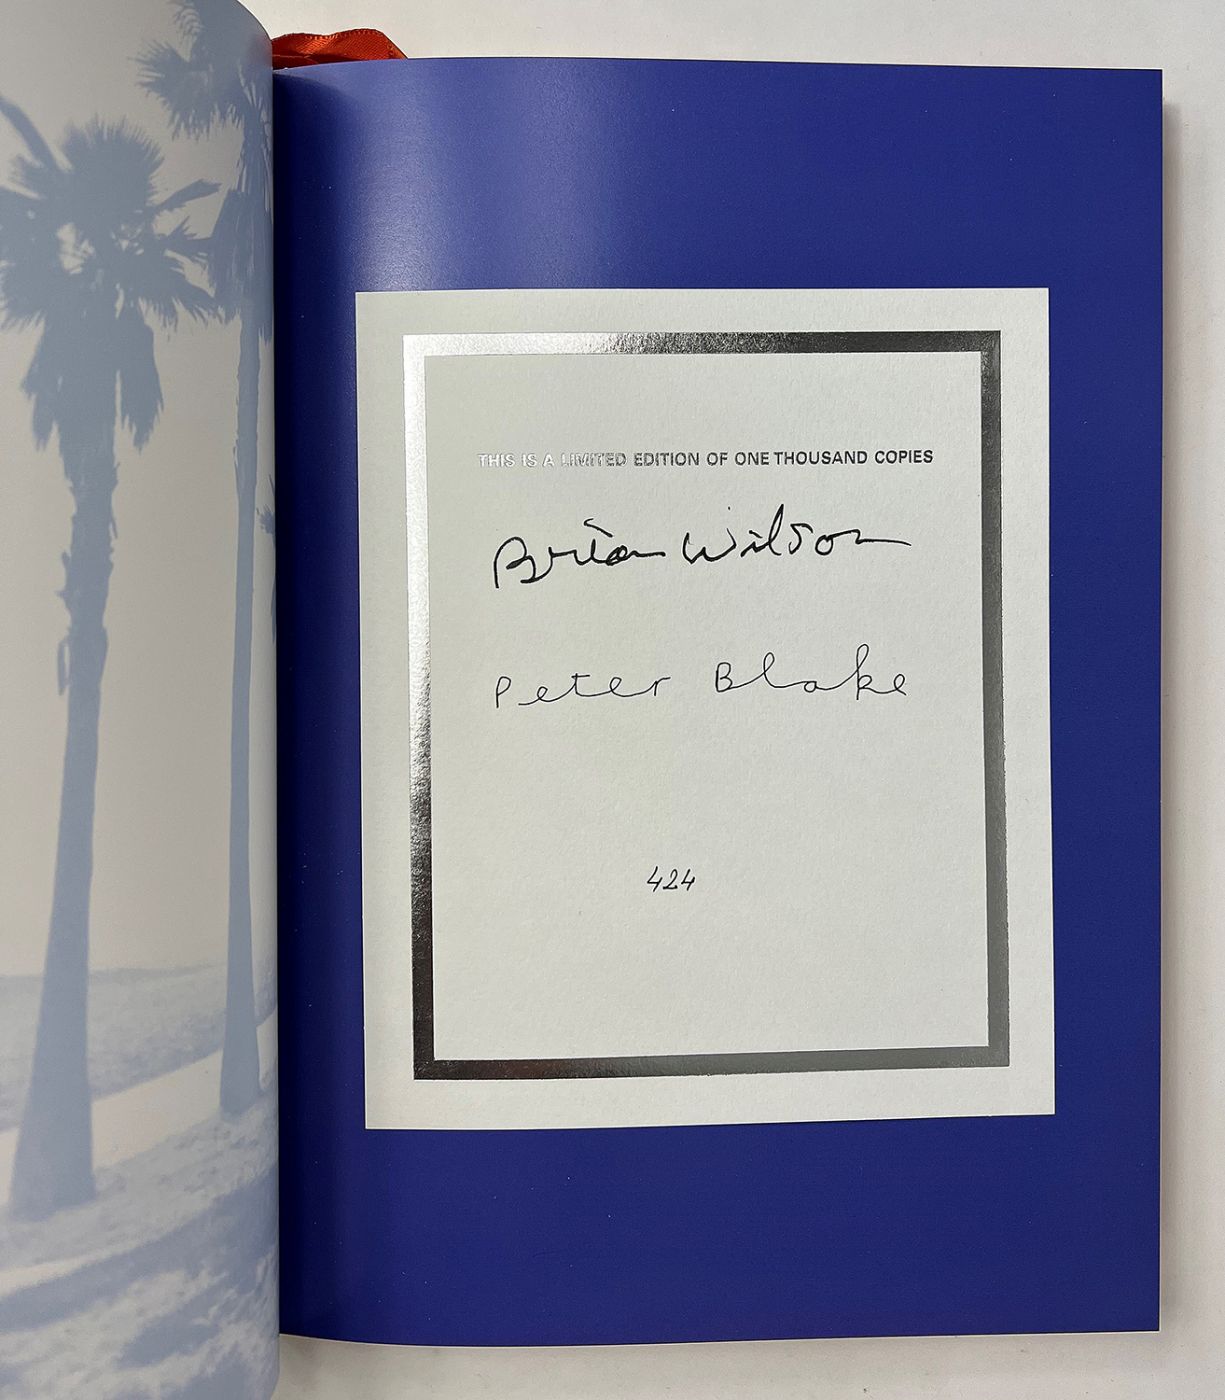 THIS IS A LIMITED EDITION OF ONE THOUSAND COPIES
Brian Wilson
Peter Blake
424